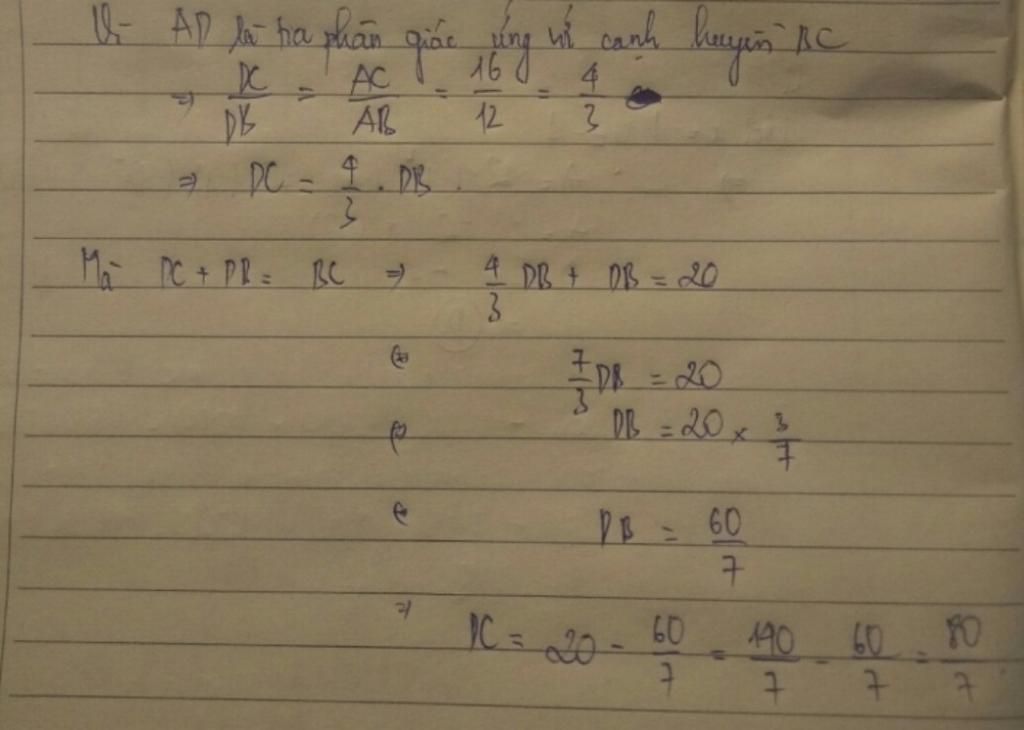 Vì AD là tia phân giác ứng với cạnh huyền BC
=> DC/DB = AC/AB = 16/12 = 4/3
=> DC = 4/3 . DB .
Mà DC + DB = BC => 4/3 DB + DB = 20
7/3 DB = 20
DB = 20 x 3/7
DB = 60/7
=> DC = 20 - 60/7 = 140/7 - 60/7 = 80/7